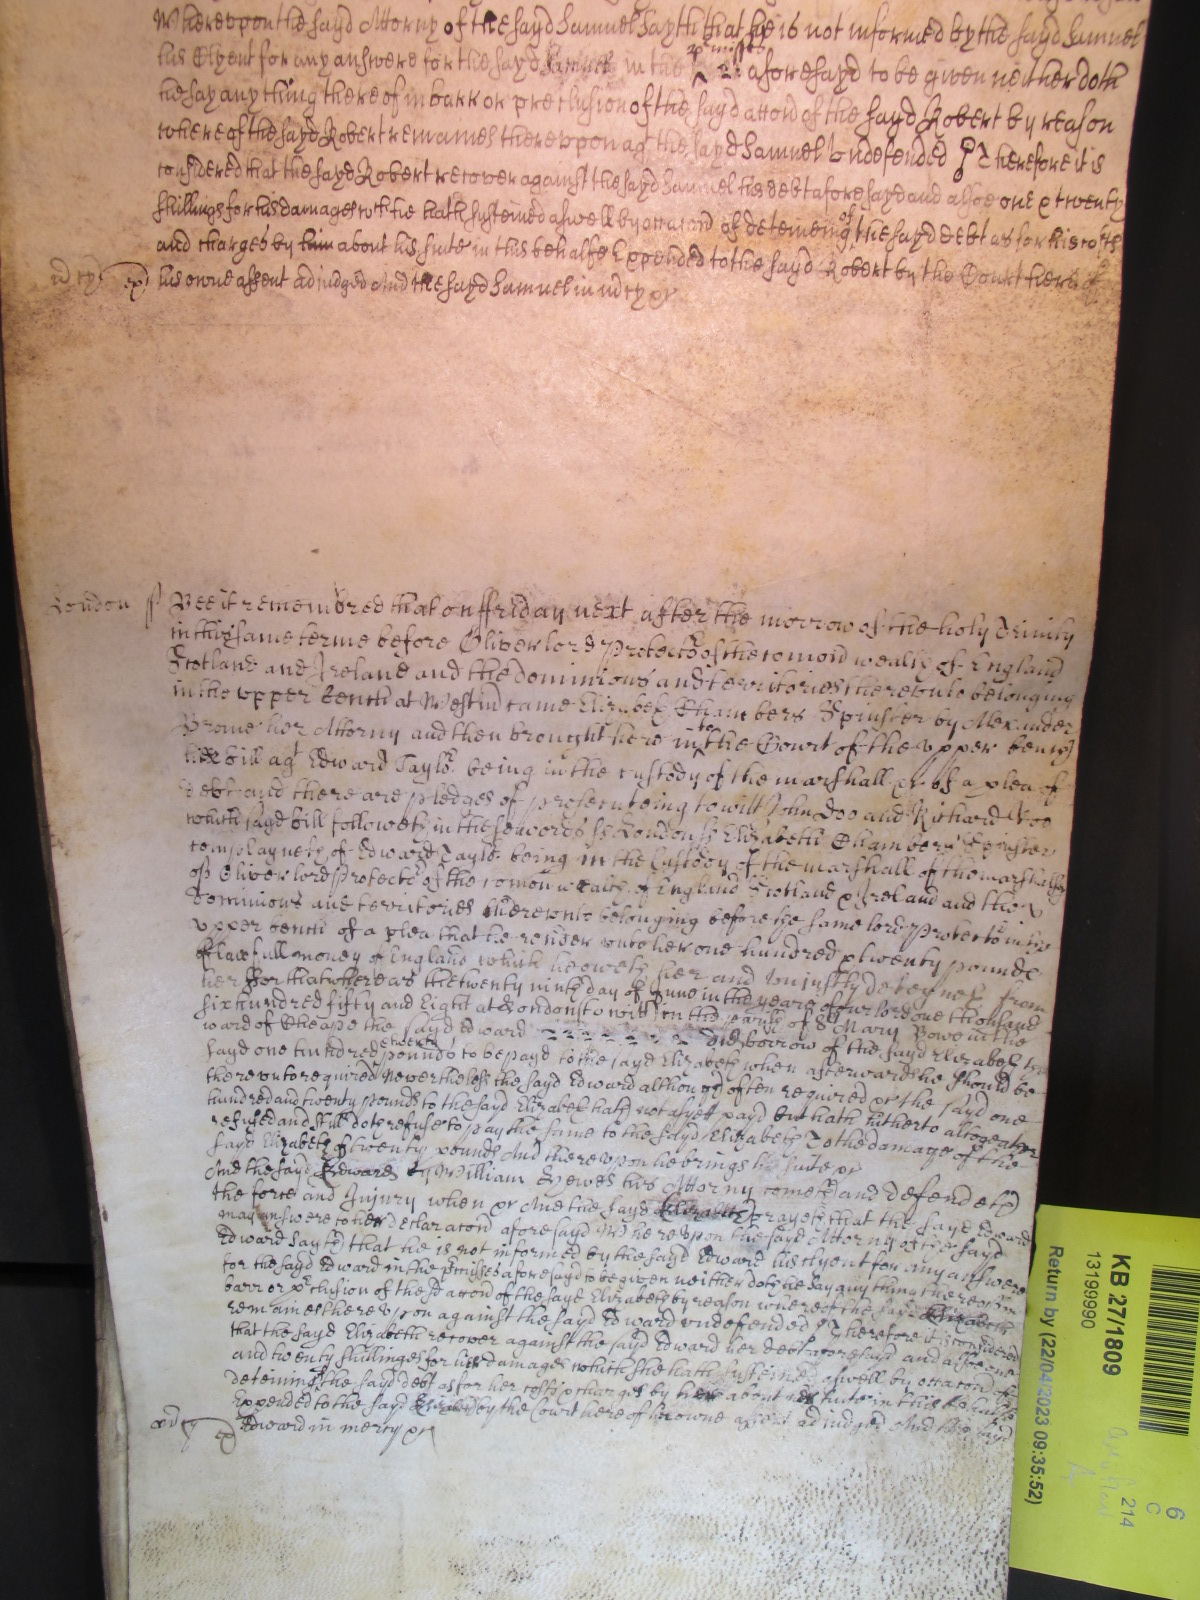 Whereupon the sayd Attorny of the sayd Samuel sayth that he is not informed by the sayd Samuel
his Clyent for any answere for the sayd Samuel in the p'misses aforesayd to be given neither doth
he say any thing thereof in barr or preclusion of the sayd accon of the sayd Robert by reason
whereof the sayd Robert remaines thereupon ag' the sayd Samuel undefended Therefore it is
considered that the sayd Robert recover against the sayd Samuel his debt aforesayd and alsoe one & twenty
shillings for his damages wch he hath susteined aswell by occacon of deteineing of the sayd debt as for his costs
and charges by him about his suite in this behalfe Expended to the sayd Robert by the Court here of
his owne assent adjudged And the sayd Samuel in mercy &c
London ss Bee it remembred that on ffriday next after the morrow of the holy Trinity
in this same terme before Oliver lord Protector of the comon wealth of England
Scotland and Ireland and the dominions and territories thereunto belonging
in the upper bench at Westm' came Elizabeth Chambers Spinster by Alexander
Brome her Attorny and then brought here into the Court of the upper bench
her bill ag' Edward Taylor being in the custody of the marshall &c of a plea of
debt and there are pledges of prosecuteing to witt John Doo and Richard Roo
which sayd bill followeth in these words ss London ss Elizabeth Chambers Spinster
complayneth of Edward Taylor being in the Custody of the marshall of the marshallsey
of Oliver lord Protector of the comon wealth of England Scotland & Ireland and the
dominions and territories thereunto belonging before the same lord Protector in the
upper bench of a plea that he render unto her one hundred & twenty pounds
of lawfull money of England which he oweth her and unjustly deteyneth from
her ffor that whereas the twenty ninth day of June in the yeare of our lord one thousand
six hundred fifty and Eight at London to witt in the parish of St Mary Bowe in the
ward of Cheape the sayd Edward did borrow of the sayd Elizabeth the
sayd one hundred twenty pounds to be payd to the sayd Elizabeth when afterwards he should be
thereunto required Neverthelesse the sayd Edward although often required &c the sayd one
hundred and twenty pounds to the sayd Elizabeth hath not as yett payd but hath hitherto altogeather
refused and still doth refuse to pay the same to the sayd Elizabeth To the damage of the
sayd Elizabeth of twenty pounds And thereupon he brings suite &c
And the sayd Edward by William his Attorny cometh and defendeth
the force and Injury when &c And the sayd Elizabeth prayeth that the sayd Edward
may answere to her declaracon aforesayd Whereupon the sayd Attorny of the sayd
Edward sayth that he is not informed by the sayd Edward his Clyent for any answere
for the sayd Edward in the p'misses aforesayd to be given neither doth he say any thing thereof in
barr or p'clusion of the sd accon of the sayd Elizabeth by reason whereof the sayd Elizabeth
remaines thereupon against the sayd Edward undefended Therefore it is considered
that the sayd Elizabeth recover against the sayd Edward her debt aforesayd and alsoe one
and twenty shillinges for her damages which she hath susteined aswell by occacon of
deteining the sayd debt as for her costs & charges by her about her suite in this behalfe
Expended to the sayd Elizabeth by the Court here of her owne assent adjudged And the sayd
Edward in mercy &c
KB 27/1809
13199990
Return by (22/04/2023 09:35:52)
6
C
214